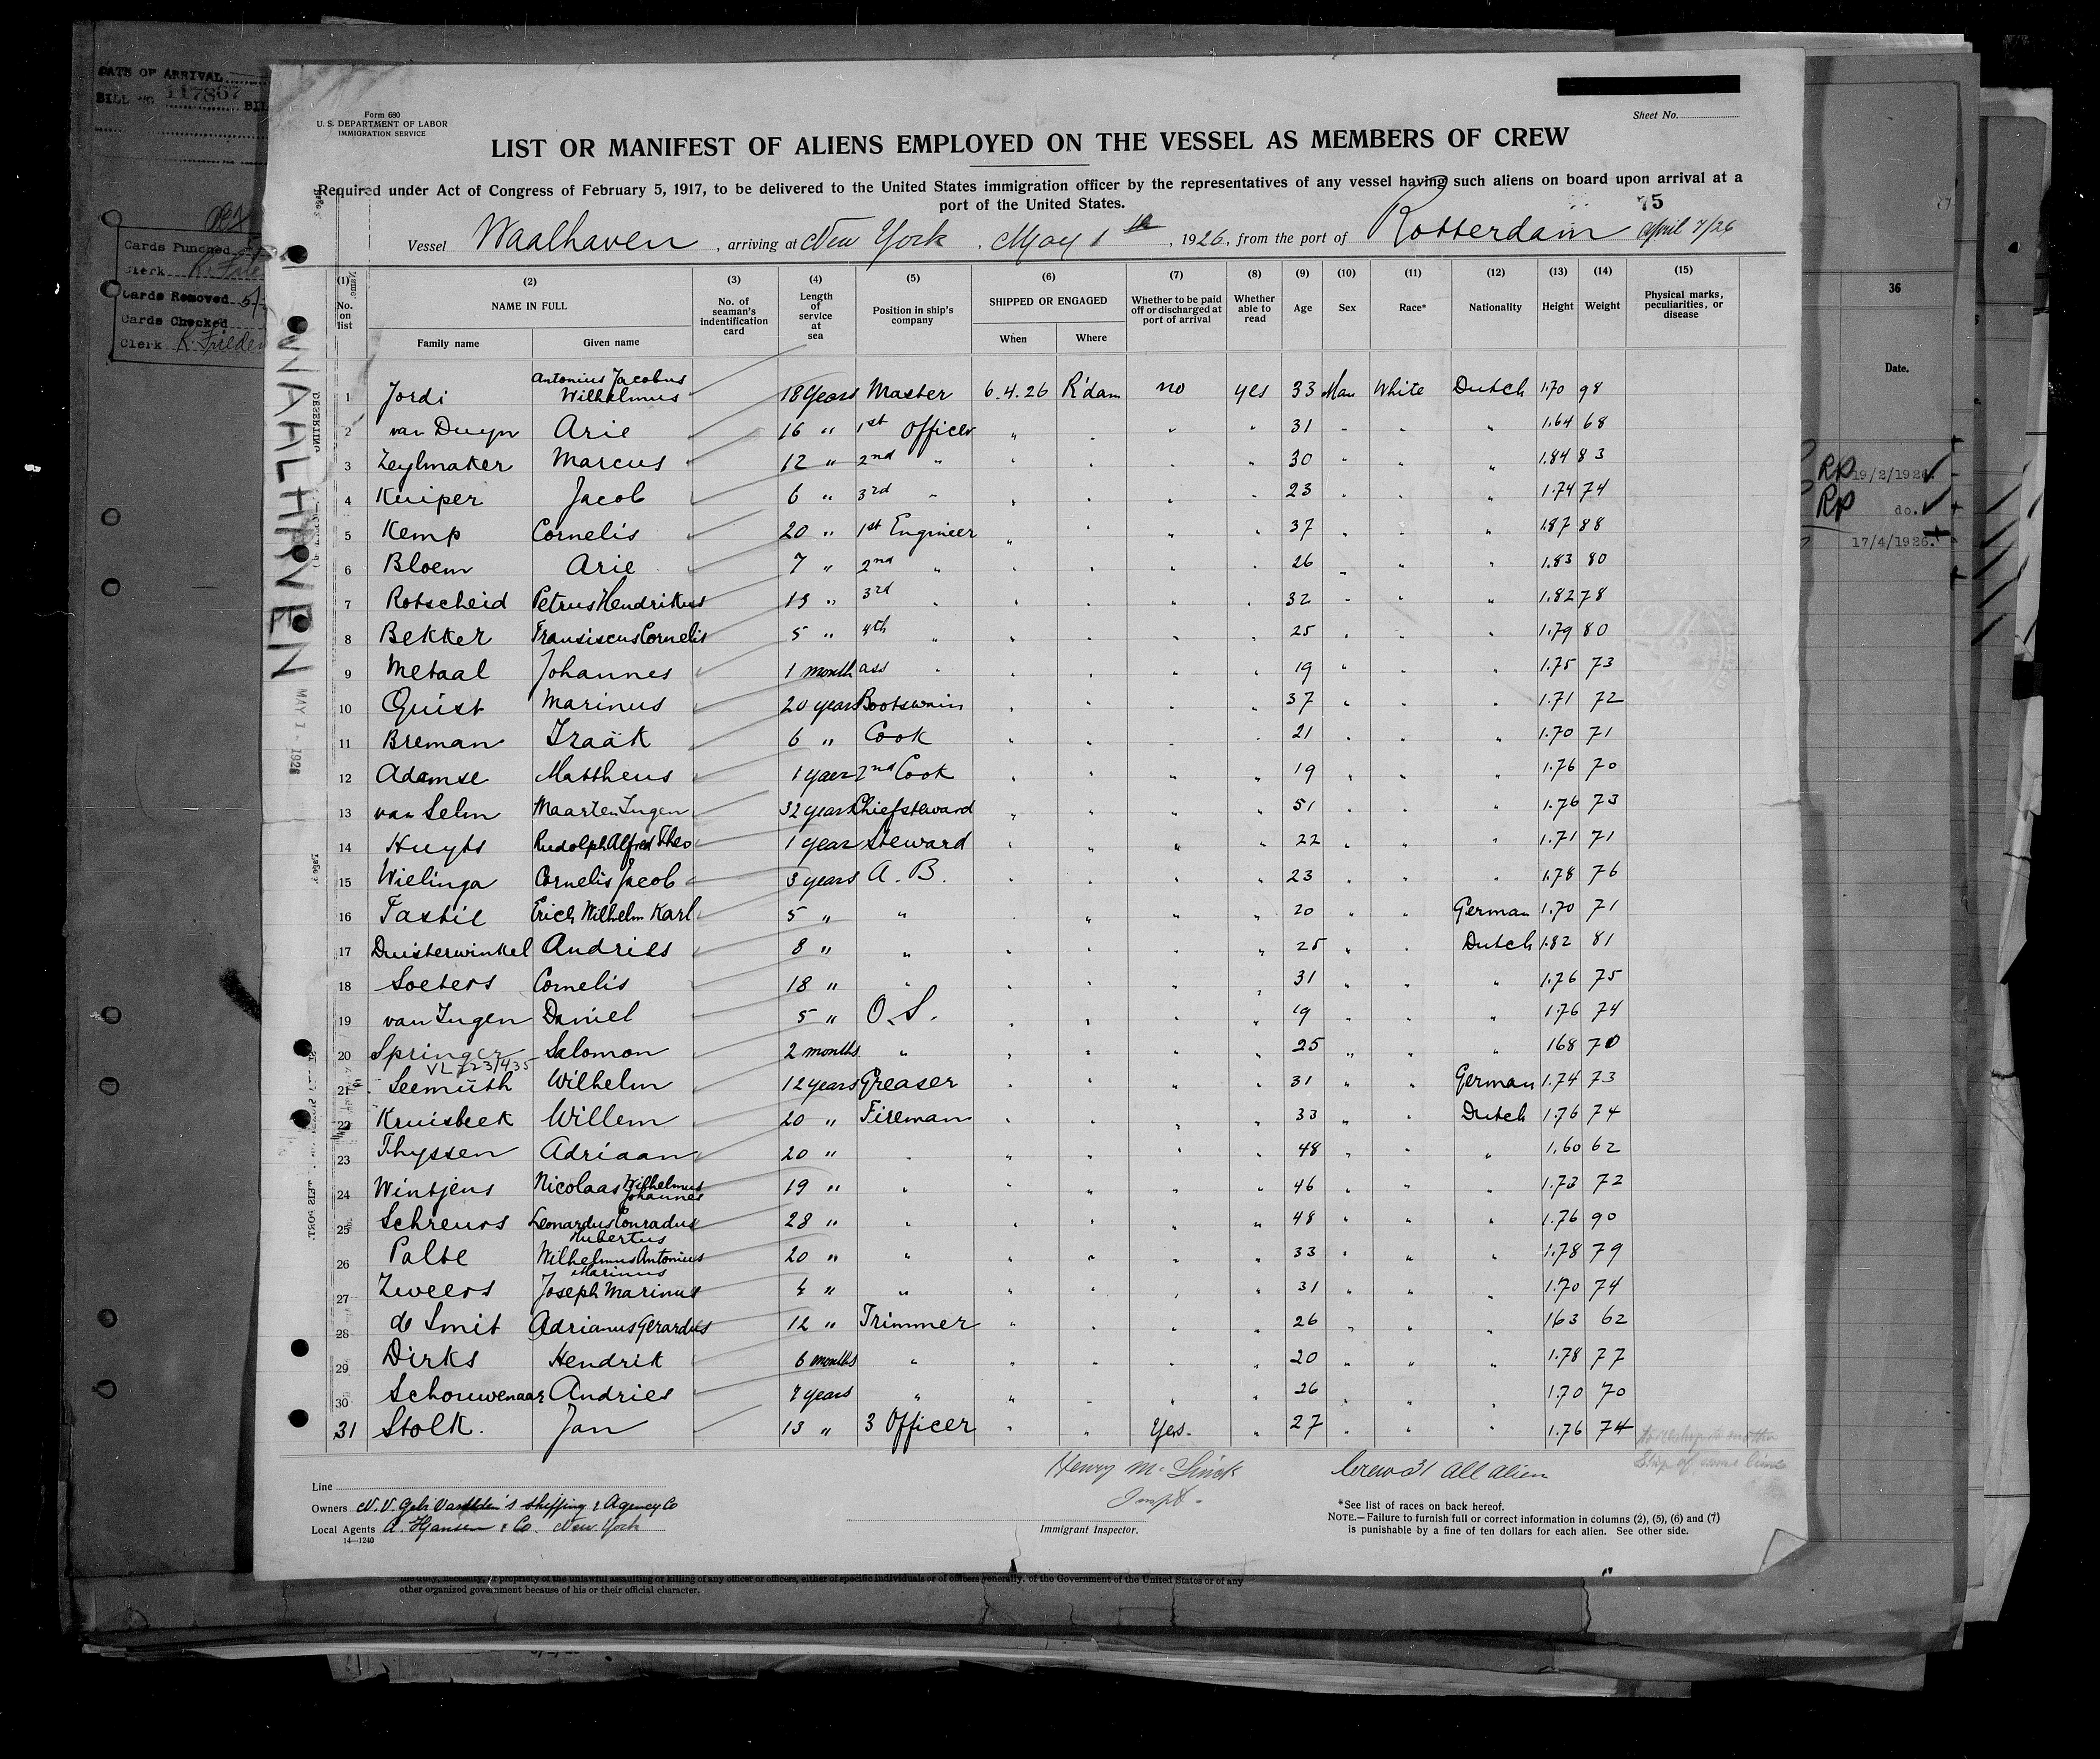 DATE OF ARRIVAL
BILL NO. 117867 BIL
Cards Punched
Clerk
Cards Removed 5/
Cards Checked
Clerk K. Frieden
Form 680
U. S. DEPARTMENT OF LABOR
IMMIGRATION SERVICE
Sheet No.
LIST OR MANIFEST OF ALIENS EMPLOYED ON THE VESSEL AS MEMBERS OF CREW
Required under Act of Congress of February 5, 1917, to be delivered to the United States immigration officer by the representatives of any vessel having such aliens on board upon arrival at a
port of the United States.
75
Vessel Waalhaven, arriving at New York, May 1st, 1926, from the port of Rotterdam April 7/26
WAALHAVEN
MAY 1 - 1926
(1) (2) (3) (4) (5) (6) (7) (8) (9) (10) (11) (12) (13) (14) (15)
No. on list NAME IN FULL Family name Given name No. of seaman's indentification card Length of service at sea Position in ship's company SHIPPED OR ENGAGED When Where Whether to be paid off or discharged at port of arrival Whether able to read Age Sex Race* Nationality Height Weight Physical marks, peculiarities, or disease
1 Jordi Antonius Jacobus Wilhelmus 18 Years Master 6.4.26 R'dam no yes 33 Man White Dutch 1.70 98
2 van Duyn Arie 16 " 1st Officer " " " " 31 " " " 1.64 68
3 Zeylmaker Marcus 12 " 2nd " " " " " 30 " " " 1.84 83
4 Kuiper Jacob 6 " 3rd " " " " " 23 " " " 1.74 74
5 Kemp Cornelis 20 " 1st Engineer " " " " 37 " " " 1.87 88
6 Bloem Arie 7 " 2nd " " " " " 26 " " " 1.83 80
7 Rotscheid Petrus Hendrikus 13 " 3rd " " " " " 32 " " " 1.82 78
8 Bekker Fransiscus Cornelis 5 " 4th " " " " " 25 " " " 1.79 80
9 Metaal Johannes 1 month ass " " " " " 19 " " " 1.75 73
10 Quist Marinus 20 years Bootswain " " " " 37 " " " 1.71 72
11 Breman Izaäk 6 " Cook " " " " 21 " " " 1.70 71
12 Adamse Mattheus 1 yaer 2nd Cook " " " " 19 " " " 1.76 70
13 van Selm Maarten Jugen 32 years Chiefsteward " " " " 51 " " " 1.76 73
14 Huyts Rudolph Alfred Theo 1 year steward " " " " 22 " " " 1.71 71
15 Wielinga Cornelis Jacob 3 years A. B. " " " " 23 " " " 1.78 76
16 Tastie Erich Wilhelm Karl 5 " " " " " " 20 " " German 1.70 71
17 Duisterwinkel Andries 8 " " " " " " 25 " " Dutch 1.82 81
18 Soeters Cornelis 18 " " " " " " 31 " " " 1.76 75
19 van Jugen Daniel 5 " O. S. " " " " 19 " " " 1.76 74
20 Springer Salomon 2 months " " " " " 25 " " " 168 70
VL 723/435
21 Seemüth Wilhelm 12 years Greaser " " " " 31 " " German 1.74 73
22 Kruisbeek Willem 20 " Fireman " " " " 33 " " Dutch 1.76 74
23 Thyssen Adriaan 20 " " " " " " 48 " " " 1.60 62
24 Wintjens Nicolaas Wilhelmus Johannes 19 " " " " " " 46 " " " 1.73 72
25 Schreurs Leonardus Conradus Hubertus 28 " " " " " " 48 " " " 1.76 90
26 Palte Wilhelmus Antonius Marinus 20 " " " " " " 33 " " " 1.78 79
27 Zweers Joseph Marinus 4 " " " " " " 31 " " " 1.70 74
28 de Smit Adrianus Gerardus 12 " Trimmer " " " " 26 " " " 163 62
29 Dirks Hendrik 6 months " " " " " 20 " " " 1.78 77
30 Schouwenaar Andries 7 years " " " " " 26 " " " 1.70 70
31 Stolk. Jan 13 " 3 Officer " " Yes. " 27 " " " 1.76 74 to reship on mother
Ship of same line
Line
Owners N. V. Gebr Van Uden's Shipping & Agency Co
Local Agents A. Hjansen & Co. New York
14—1240
Henry
Inspt.
Immigrant Inspector.
Crew 31 All Alien
*See list of races on back hereof.
NOTE.—Failure to furnish full or correct information in columns (2), (5), (6) and (7)
is punishable by a fine of ten dollars for each alien. See other side.
36
Date.
RP 19/2/1926.
RP do.
17/4/1926.
the duty, necessity, or propriety of the unlawful assaulting or killing of any officer or officers, either of specific individuals or of officers generally, of the Government of the United States or of any
other organized government because of his or their official character.